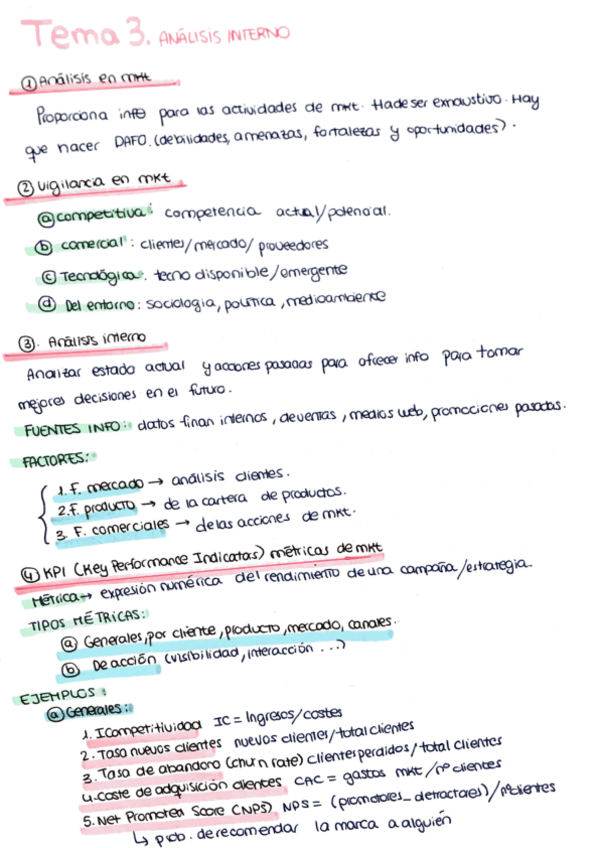 Tema 3. ANÁLISIS INTERNO
① Análisis en mkt
Proporciona info para las actividades de mkt. Ha de ser exhaustivo. Hay
que hacer DAFO. (debilidades, amenazas, fortalezas y oportunidades).
② Vigilancia en mkt
ⓐ competitiva: competencia actual/potencial.
ⓑ comercial: clientes/mercado/proveedores
ⓒ Tecnológica: tecno disponible/emergente
ⓓ Del entorno: sociologia, política, medioambiente
③. Análisis interno
Analizar estado actual y acciones pasadas para ofrecer info para tomar
mejores decisiones en el futuro.
FUENTES INFO: datos finan internos, de ventas, medios web, promociones pasadas.
FACTORES:
1. F. mercado → análisis clientes.
2. F. producto → de la cartera de productos.
3. F. comerciales → de las acciones de mkt.
④ KPI (Key Performance Indicators) métricas de mkt
Métrica → expresión numérica del rendimiento de una campaña/estrategia.
TIPOS MÉTRICAS:
ⓐ Generales, por cliente, producto, mercado, canales.
ⓑ De acción (visibilidad, interacción ...)
EJEMPLOS:
ⓐ Generales:
1. I Competitividad IC = Ingresos/costes
2. Tasa nuevos clientes nuevos clientes/total clientes
3. Tasa de abandono (churn rate) clientes perdidos/total clientes
4. Coste de adquisición clientes CAC = gastos mkt/nº clientes
5. Net Promoted Score (NPS) NPS = (promotores - detractores)/nº clientes
↳ prob. de recomendar la marca a alguién